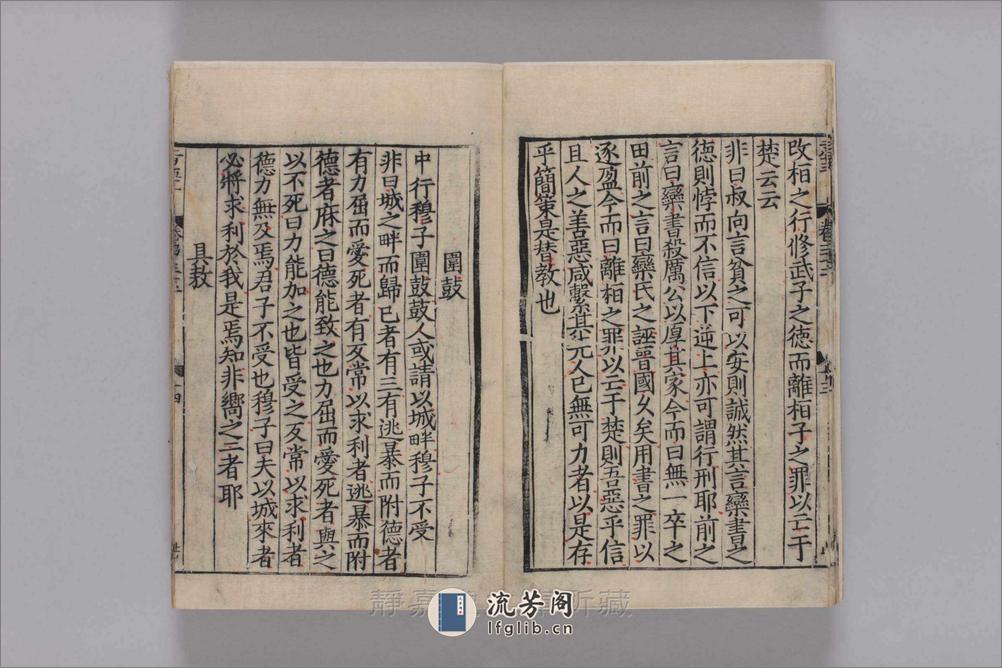 改桓之行修武子之德而離桓子之罪以亡于
楚云云
非曰叔向言貧之可以安則誠然其言欒書之
德則悖而不信以下逆上亦可謂行刑耶前之
言曰欒書殺厲公以厚其家今而曰無一卒之
田前之言曰欒氏之誣晉國久矣用書之罪以
逐盈今而曰離桓之罪以亡于楚則吾惡乎信
且人之善惡咸繫其先人已無可力者以是存
乎簡策是替教也
圍鼓
中行穆子圍鼓鼓人或請以城畔穆子不受
非曰城之畔而歸已者有三有逃暴而附德者
有力屈而愛死者有反常以求利者逃暴而附
德者庥之曰德能致之也力屈而愛死者與之
以不死曰力能加之也皆受之反常以求利者
德力無及焉君子不受也穆子曰夫以城來者
必將求利於我是焉知非嚮之二者耶
具敖
静嘉 所藏
流芳阁
lfglib.cn